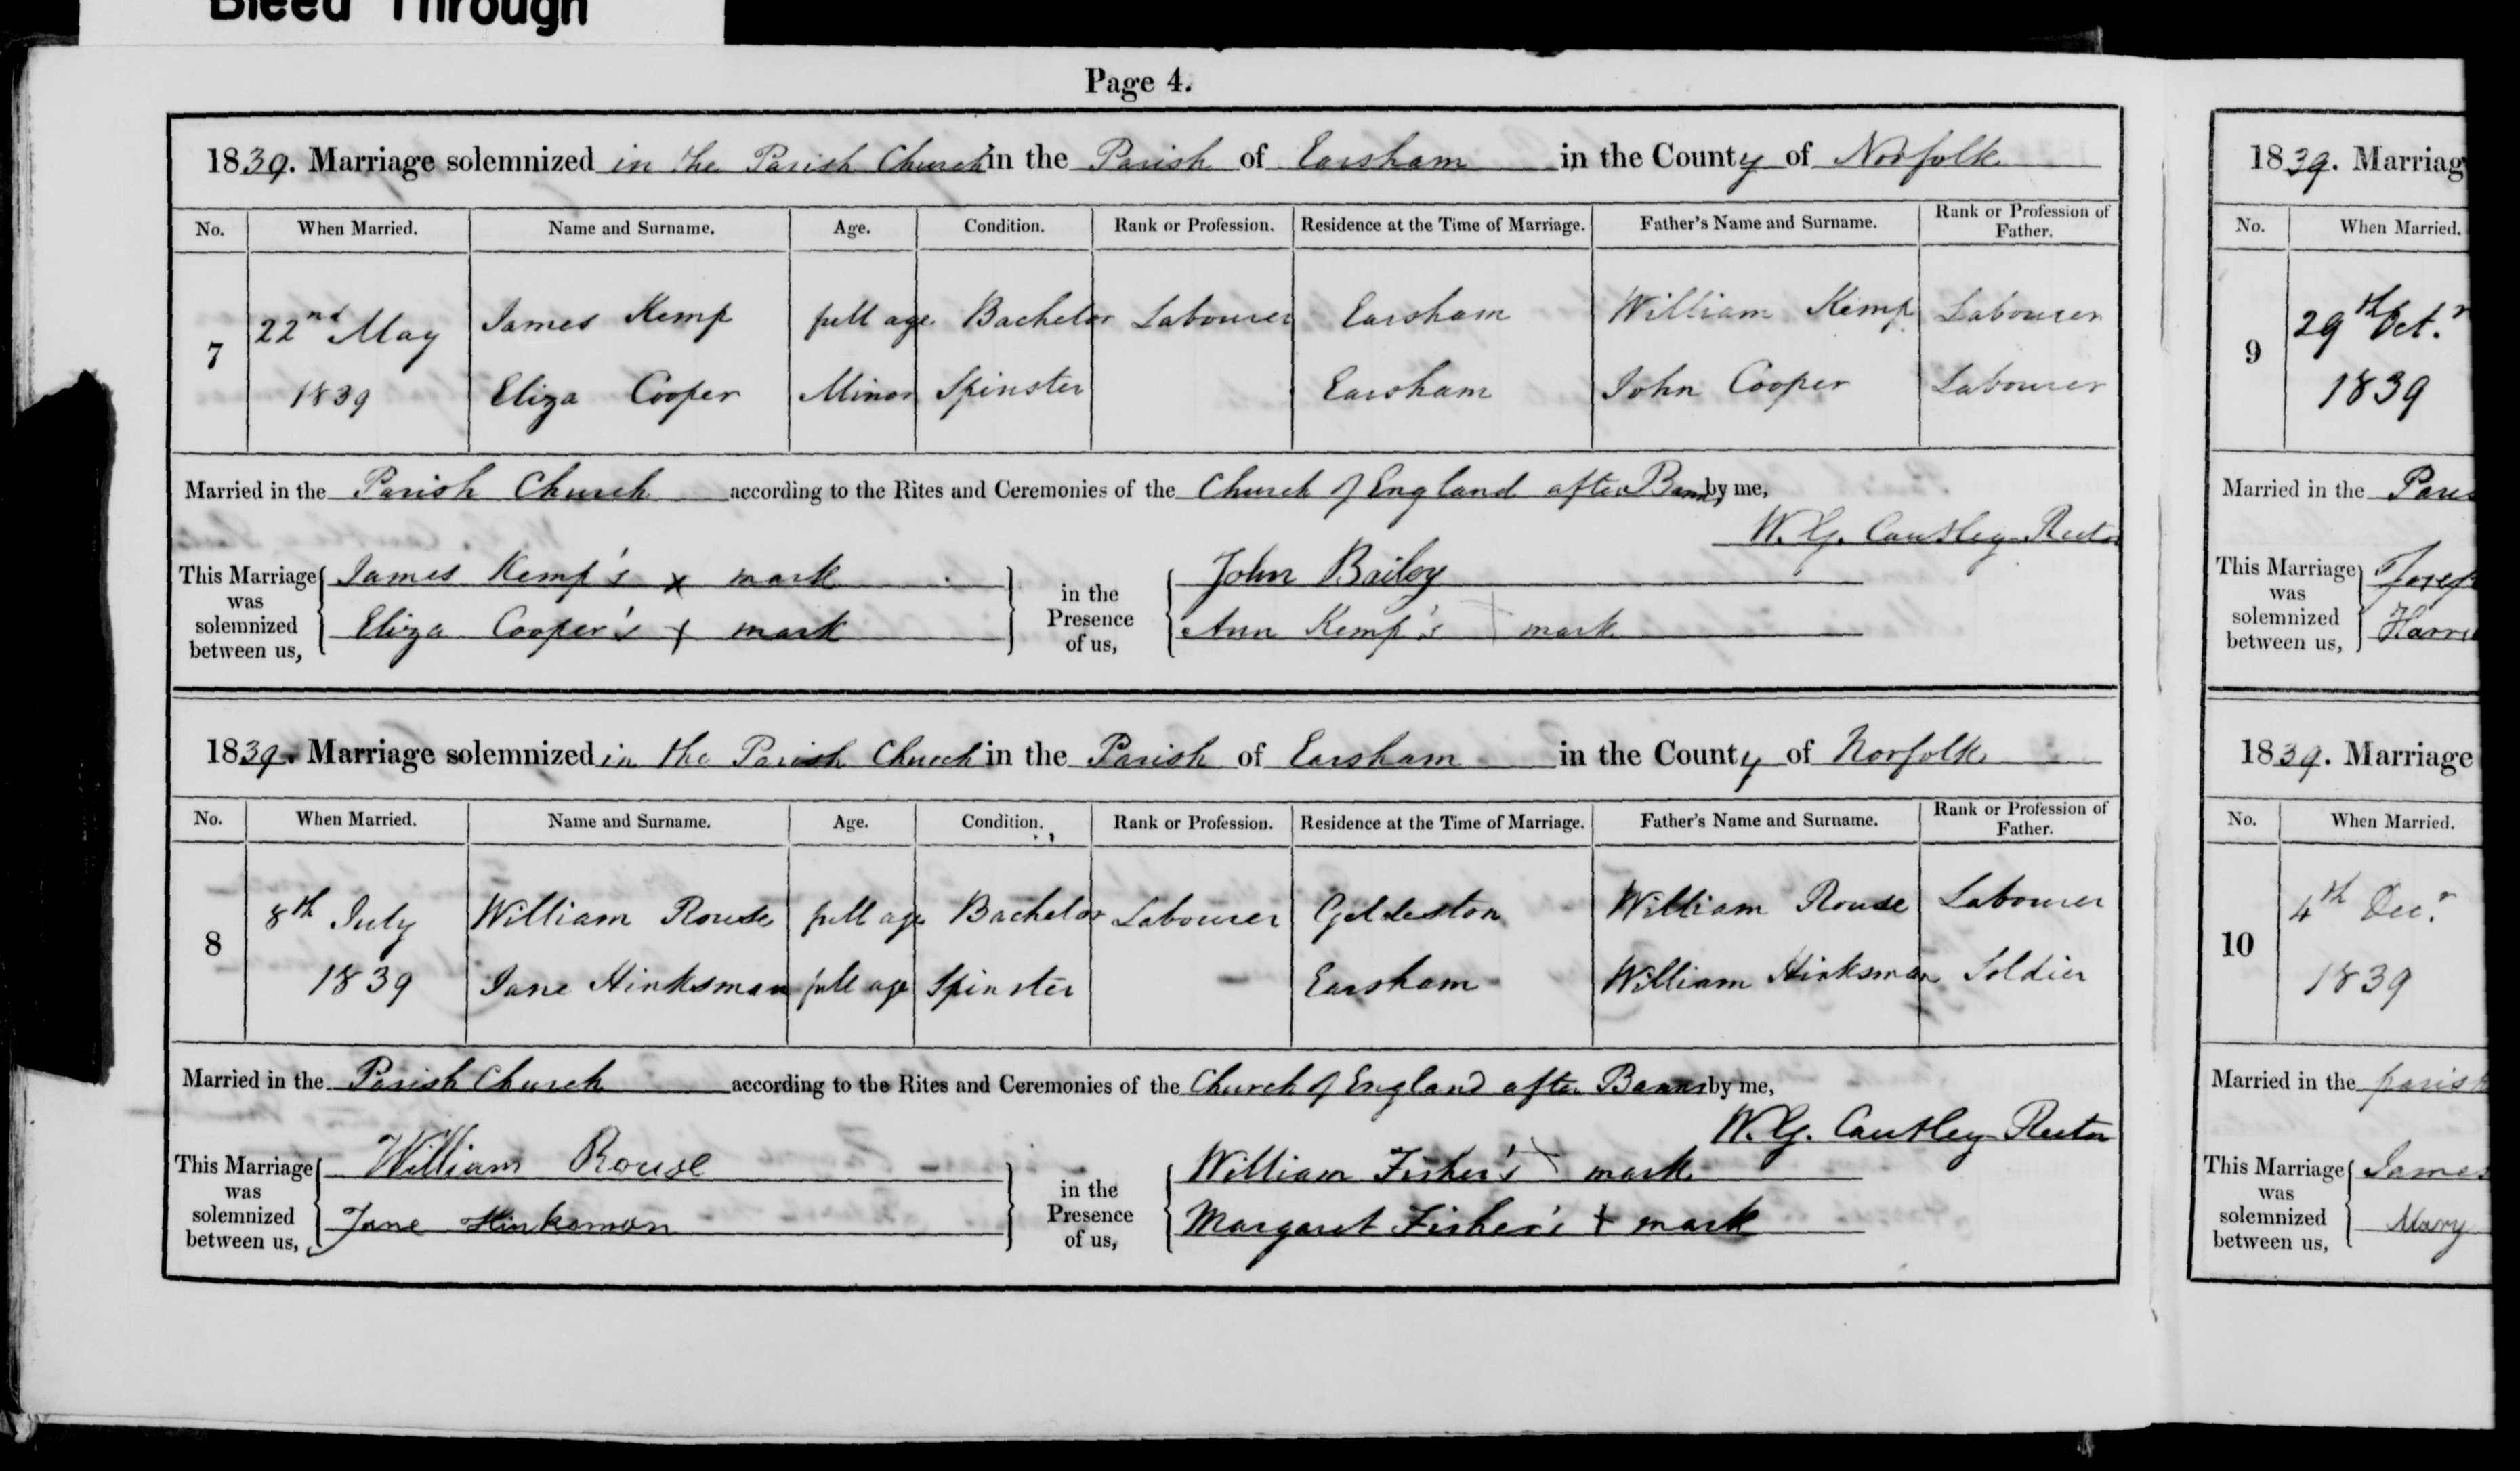 Bleed Through
Page 4.
1839. Marriage solemnized in the Parish Church in the Parish of Earsham in the County of Norfolk
No. When Married. Name and Surname. Age. Condition. Rank or Profession. Residence at the Time of Marriage. Father's Name and Surname. Rank or Profession of Father.
7 22nd May 1839 James Kemp full age Bachelor Labourer Earsham William Kemp Labourer
Eliza Cooper Minor Spinster Earsham John Cooper Labourer
Married in the Parish Church according to the Rites and Ceremonies of the Church of England after Banns by me,
W. G. Cautley Rector
This Marriage was solemnized between us, James Kemp's x mark
Eliza Cooper's + mark
in the Presence of us, John Bailey
Ann Kemp's + mark
1839. Marriage solemnized in the Parish Church in the Parish of Earsham in the County of Norfolk
No. When Married. Name and Surname. Age. Condition. Rank or Profession. Residence at the Time of Marriage. Father's Name and Surname. Rank or Profession of Father.
8 8th July 1839 William Rouse full age Bachelor Labourer Geldeston William Rouse Labourer
Jane Hinksman full age Spinster - Earsham William Hinksman Soldier
Married in the Parish Church according to the Rites and Ceremonies of the Church of England after Banns by me,
W. G. Cautley Rector
This Marriage was solemnized between us, William Rouse
Jane Hinksman
in the Presence of us, William Fisher's + mark
Margaret Fisher's + mark
1839. Marriag
No. When Married.
9 29th Octr.
1839
Married in the Paris
This Marriage was solemnized between us, Josep
Harri
1839. Marriage
No. When Married.
10 4th Decr.
1839
Married in the parish
This Marriage was solemnized between us, James
Mary